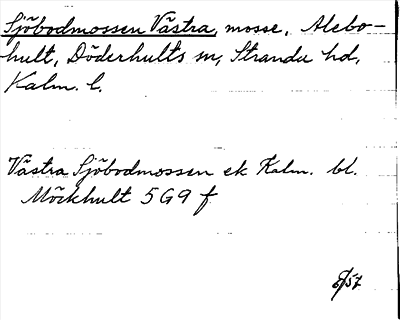 Sjöbodmossen Västra, mosse, Alebo-
hult, Döderhults sn, Stranda hd,
Kalm. l.
Västra Sjöbodmossen ek Kalm. bl.
Möckhult 5G9 f